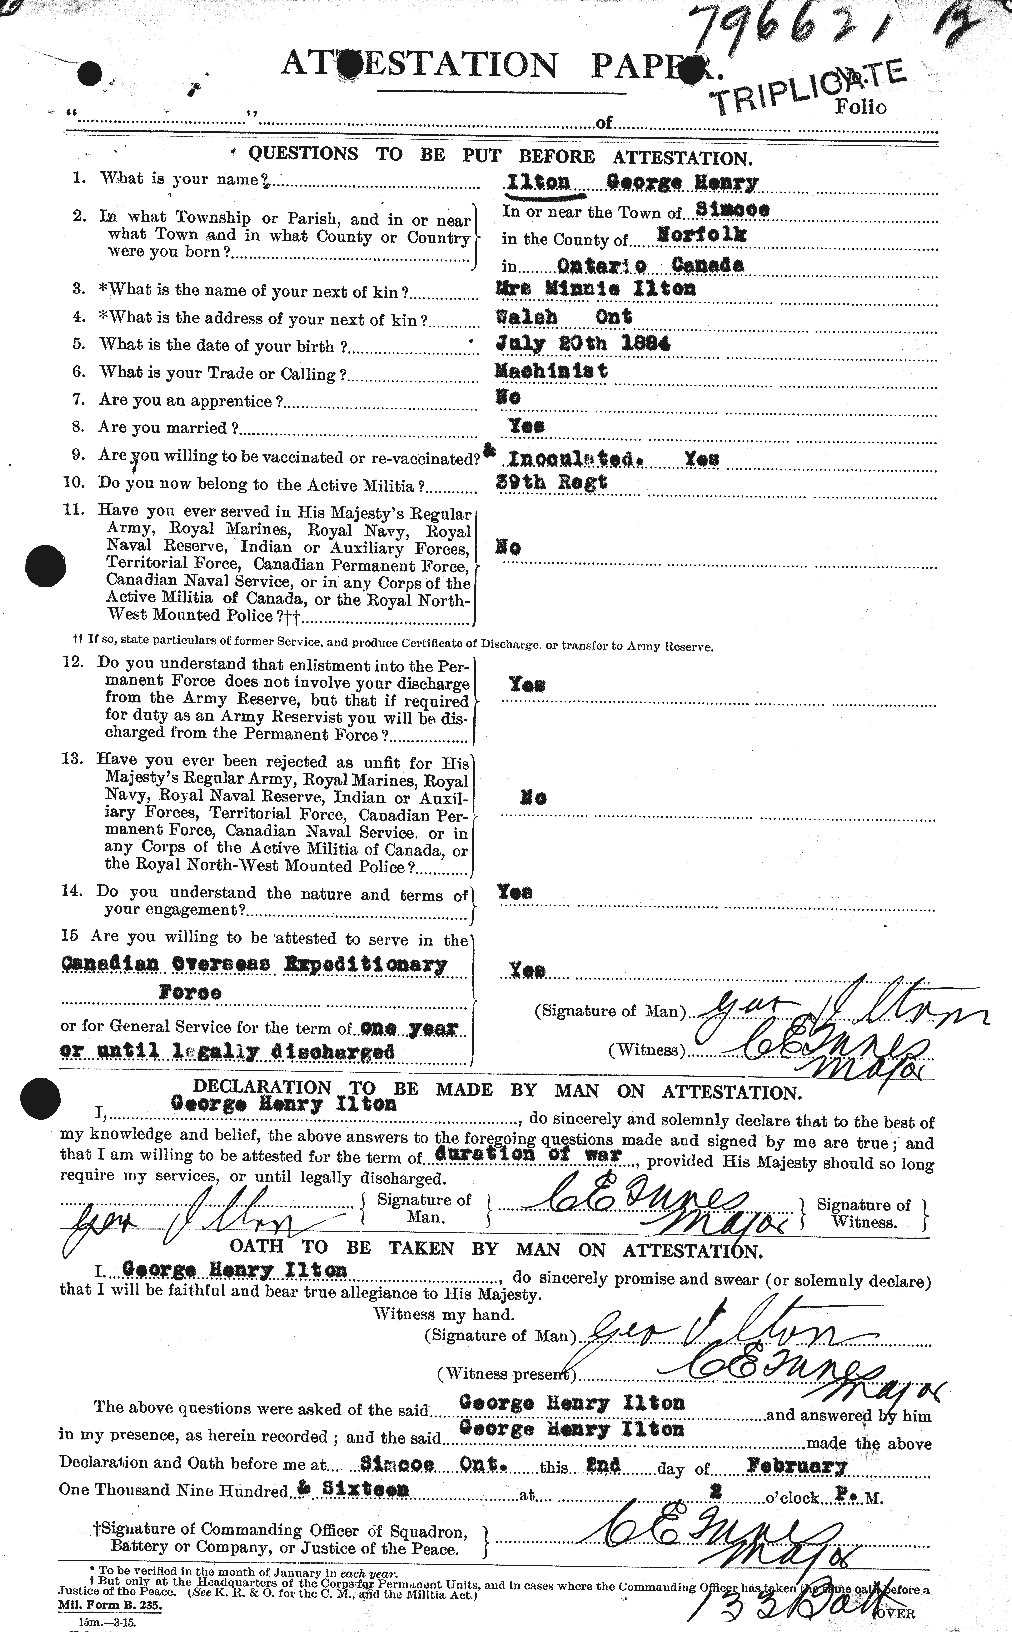 796621
ATTESTATION PAPER.
TRIPLICATE
No.
Folio
"............"............of............
QUESTIONS TO BE PUT BEFORE ATTESTATION.
1. What is your name? Ilton George Henry
2. In what Township or Parish, and in or near what Town and in what County or Country were you born?
In or near the Town of Simcoe
in the County of Norfolk
in Ontario Canada
3. *What is the name of your next of kin? Mrs Minnie Ilton
4. *What is the address of your next of kin? Walsh Ont
5. What is the date of your birth? July 20th 1884
6. What is your Trade or Calling? Machinist
7. Are you an apprentice? No
8. Are you married? Yes
9. Are you willing to be vaccinated or re-vaccinated? & Inoculated. Yes
10. Do you now belong to the Active Militia? 39th Regt
11. Have you ever served in His Majesty's Regular
Army, Royal Marines, Royal Navy, Royal
Naval Reserve, Indian or Auxiliary Forces, No
Territorial Force, Canadian Permanent Force,
Canadian Naval Service, or in any Corps of the
Active Militia of Canada, or the Royal North-
West Mounted Police?††
†† If so, state particulars of former Service, and produce Certificate of Discharge, or transfer to Army Reserve.
12. Do you understand that enlistment into the Per-
manent Force does not involve your discharge Yes
from the Army Reserve, but that if required
for duty as an Army Reservist you will be dis-
charged from the Permanent Force?
13. Have you ever been rejected as unfit for His
Majesty's Regular Army, Royal Marines, Royal
Navy, Royal Naval Reserve, Indian or Auxil- No
iary Forces, Territorial Force, Canadian Per-
manent Force, Canadian Naval Service, or in
any Corps of the Active Militia of Canada, or
the Royal North-West Mounted Police?
14. Do you understand the nature and terms of Yes
your engagement?
15 Are you willing to be attested to serve in the
Canadian Overseas Expeditionary Yes
Force
(Signature of Man) Geo Ilton
or for General Service for the term of one year
(Witness) C E Innes
or until legally discharged Major
DECLARATION TO BE MADE BY MAN ON ATTESTATION.
I, George Henry Ilton, do sincerely and solemnly declare that to the best of
my knowledge and belief, the above answers to the foregoing questions made and signed by me are true; and
that I am willing to be attested for the term of duration of war, provided His Majesty should so long
require my services, or until legally discharged.
Geo Ilton { Signature of Man. } C E Innes Major { Signature of Witness. }
OATH TO BE TAKEN BY MAN ON ATTESTATION.
I. George Henry Ilton, do sincerely promise and swear (or solemnly declare)
that I will be faithful and bear true allegiance to His Majesty.
Witness my hand.
(Signature of Man) Geo Ilton
(Witness present) C E Innes
Major
The above questions were asked of the said George Henry Ilton and answered by him
in my presence, as herein recorded; and the said George Henry Ilton made the above
Declaration and Oath before me at Simcoe Ont. this 2nd day of February
One Thousand Nine Hundred & Sixteen at 2 o'clock P. M.
†Signature of Commanding Officer of Squadron, C E Innes
Battery or Company, or Justice of the Peace. Major
* To be verified in the month of January in each year.
† But only at the Headquarters of the Corps for Permanent Units, and in cases where the Commanding Officer has taken the same oath before a
Justice of the Peace. (See K. R. & O. for the C. M., and the Militia Act.)
Mil. Form B. 235. 133 Batt OVER
15m.—3-15.